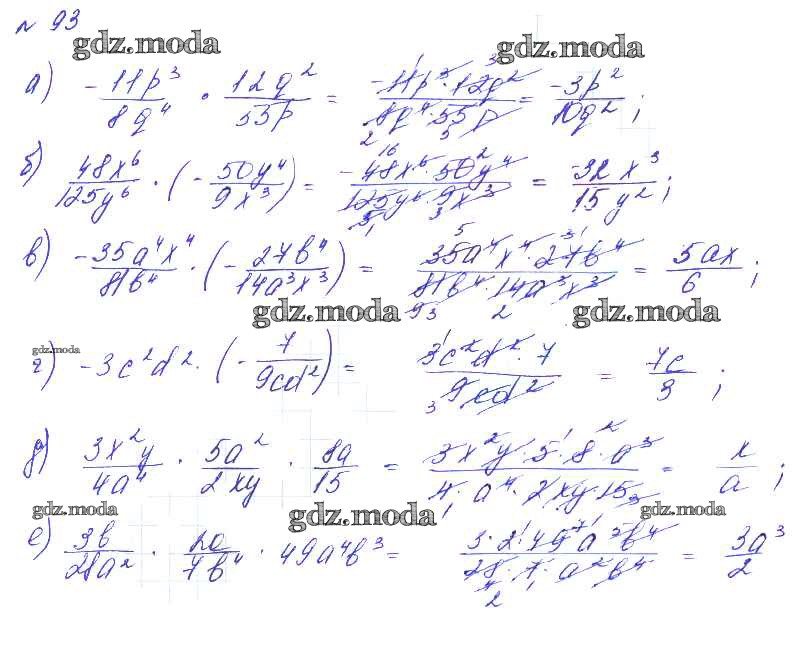 № 93
gdz.moda gdz.moda
а) -11p³/8q⁴ · 12q²/55p = -11p³·12q²/8q⁴·55p = -3p²/10q² ;
б) 48x⁶/125y⁶ · (- 50y⁴/9x³) = -48x⁶·50y⁴/125y⁶·9x³ = -32x³/15y² ;
в) -35a⁴x⁴/81b⁴ · (- 27b⁴/14a³x³) = 35a⁴x⁴·27b⁴/81b⁴·14a³x³ = 5ax/6 ;
gdz.moda gdz.moda
gdz.moda
г) -3c²d² · (- 7/9cd²) = 3c²d²·7/9cd² = 7c/3 ;
д) 3x²y/4a⁴ · 5a²/2xy · 8a/15 = 3x²y·5·8·a³/4·a⁴·2xy·15 = x/a ;
gdz.moda gdz.moda gdz.moda
е) 3b/28a² · 2a/7b⁴ · 49a⁴b³ = 3·2·49a b⁴/28·7·a²b⁴ = 3a³/2